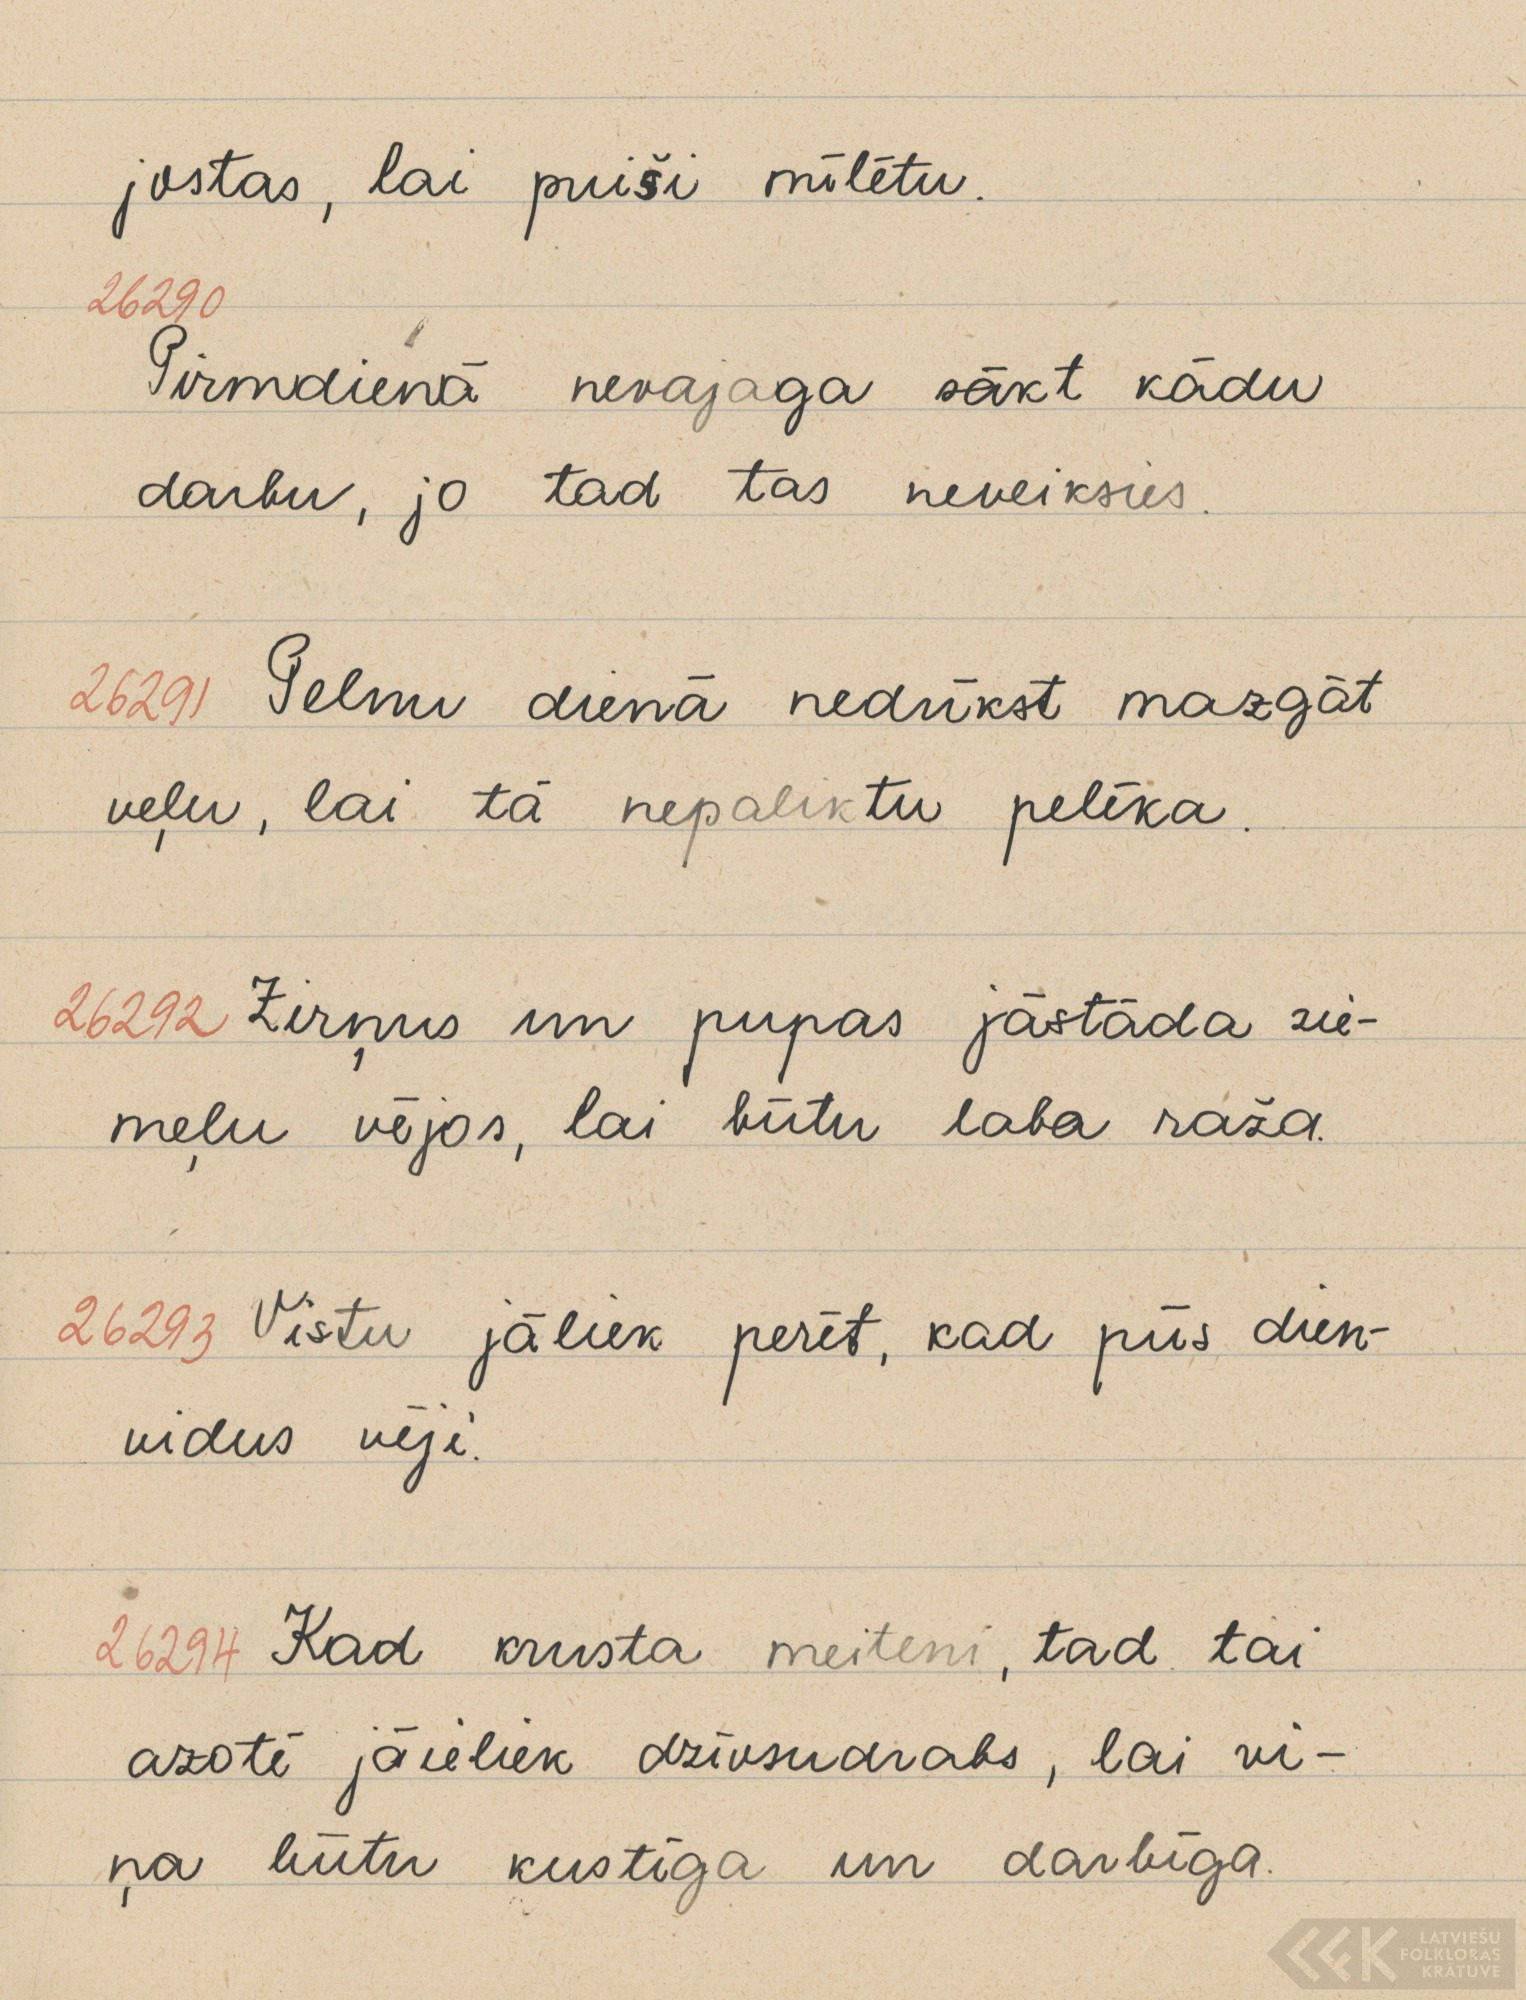 jostas, lai puiši mīlētu.
26290
Pirmdienā nevajaga sākt kādu
darbu, jo tad tas neveiksies.
26291 Pelnu dienā nedrīkst mazgāt
veļu, lai tā nepaliktu pelēka.
26292 Zirņus un pupas jāstāda zie-
meļu vējos, lai būtu laba raža.
26293 Vistu jāliek perēt, kad pūš dien-
vidus vēji.
26294 Kad krusta meiteni, tad tai
azotē jāieliek dzīvsudrabs, lai vi-
ņa būtu kustīga un darbīga.
LATVIEŠU
FOLKLORAS
KRĀTUVE